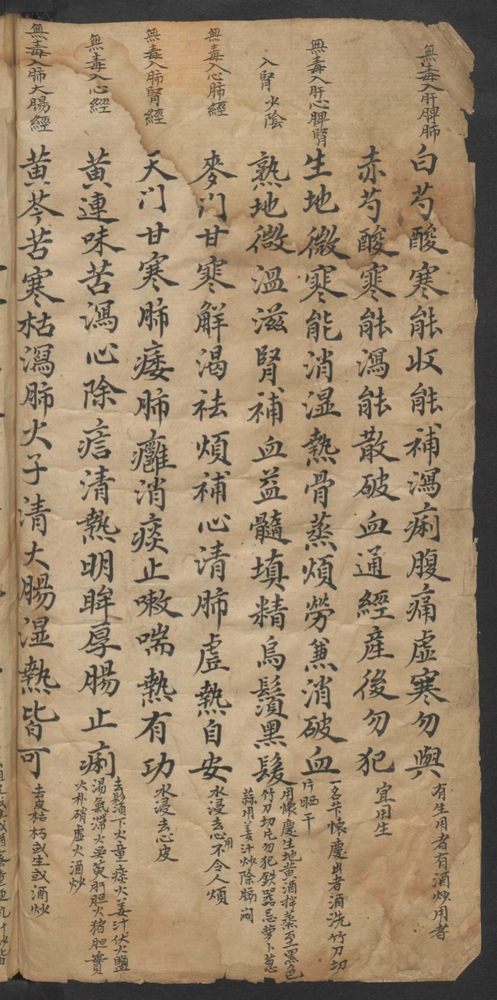 無毒入肝脾肺
白芍酸寒能收能補瀉痢腹痛虛寒勿與
有生用者有酒炒用者
赤芍酸寒能瀉能散破血通經產後勿犯
宜用生
無毒入肝心脾腎
生地微寒能消湿熱骨蒸煩勞兼消破血
一名芐懷慶出者酒洗竹刀切
片晒干
入腎少陰
熟地微溫滋腎補血益髓填精烏鬚黑髮
用懷慶生地黃酒拌蒸至黑色
竹刀切片勿犯鉄器忌萝卜葱
蒜用姜汁炒除膈悶
無毒入心肺經
麥门甘寒解渴祛煩補心清肺虛熱自安
水浸去心用不令人煩
無毒入肺腎經
天门甘寒肺痿肺癰消痰止嗽喘熱有功
水浸去心皮
無毒入心經
黃連味苦瀉心除痞清熱明眸厚腸止痢
去鬚下火童痰火姜汁伏火鹽
湯氣滞火吳萸肝胆火猪胆實
火朴硝虛火酒炒
無毒入肺大腸經
黃芩苦寒枯瀉肺火子清大腸湿熱皆可
去皮枯朽或生或酒炒